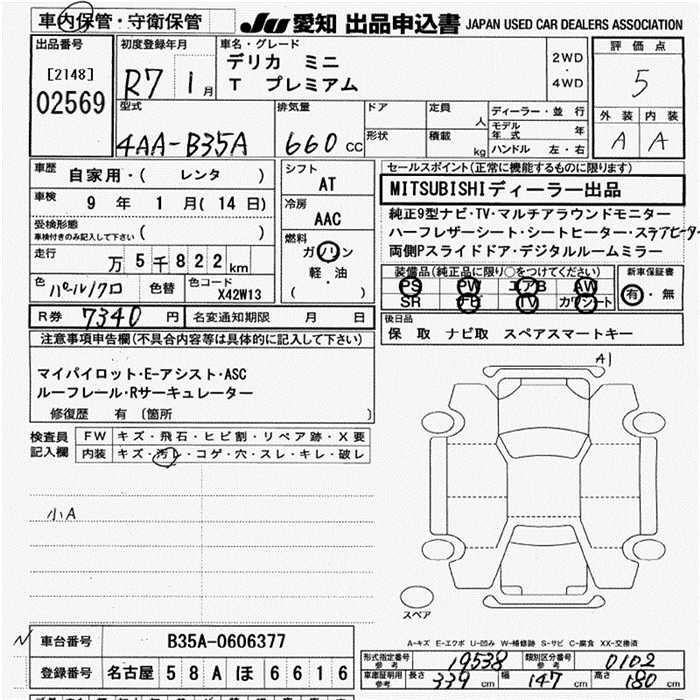 車内保管・守衛保管
JU 愛知 出品申込書 JAPAN USED CAR DEALERS ASSOCIATION
出品番号
[2148]
02569
初度登録年月
R7 1月
車名・グレード
デリカ ミニ
T プレミアム
2WD
・
4WD
評価点
5
外装 内装
A A
型式
4AA-B35A
排気量
660 CC
ドア
形状
定員 人
積載 kg
ディーラー・並行
モデル年式 年
ハンドル 左・右
車歴
自家用・( レンタ )
車検 9年 1月(14日)
受検形態
車検付きのみ記入して下さい ( )
走行 万5千822km
色 パール/クロ 色替 色コード X42W13
シフト
AT
冷房
AAC
燃料
ガソリン
軽・油
( )
セールスポイント(正常に機能するものに限ります)
MITSUBISHIディーラー出品
純正9型ナビ・TV・マルチアラウンドモニター
ハーフレザーシート・シートヒーター・ステアヒーター
両側Pスライドドア・デジタルルームミラー
装備品(純正品に限り○をつけてください)
PS PW エアB AW
SR TV カワシート
新車保証書
有・無
R券 7340円 名変通知期限 月 日
後日品
保 取 ナビ取 スペアスマートキー
注意事項申告欄(不具合内容等は具体的に記入して下さい)
マイパイロット・E-アシスト・ASC
ルーフレール・Rサーキュレーター
修復歴 有 〔箇所 〕
検査員
記入欄
FW キズ・飛石・ヒビ割・リペア跡・X要
内装 キズ・汚レ・コゲ・穴・スレ・キレ・破レ
小A
A1
スペア
A-キズ E-エクボ U-凹み W-補修跡 S-サビ C-腐食 XX-交換済
車台番号 B35A-0606377
登録番号 名古屋 58A ほ 6616
形式指定番号 参考 19538 類別区分番号 参考 0102
車庫証明用 参考 長さ 339cm 幅 147cm 高さ 180cm